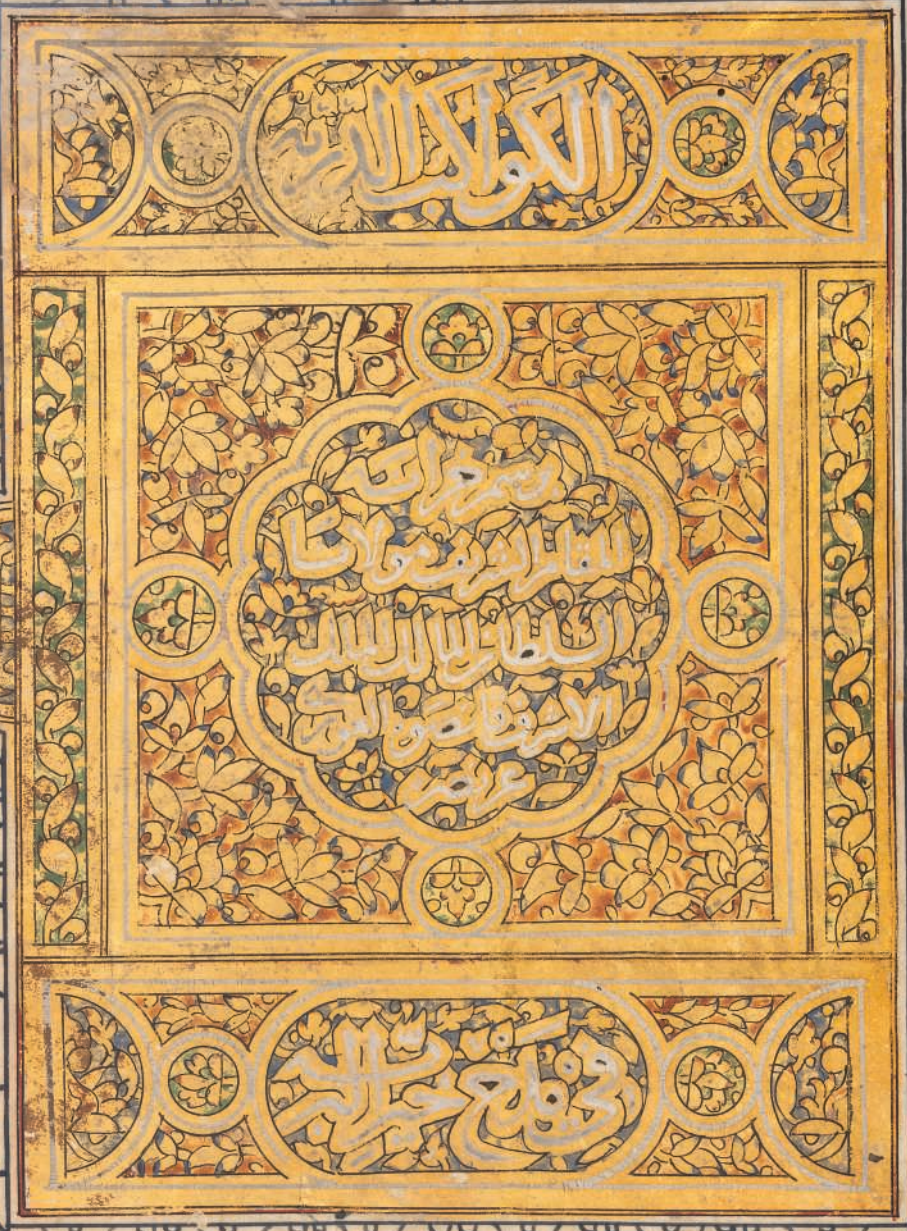 الكواكب الدرية
برسم خزانة
المقام الشريف مولانا
السلطان المالك الملك
الاشرف قانصوه الغوري
عز نصره
في مدح خير البرية